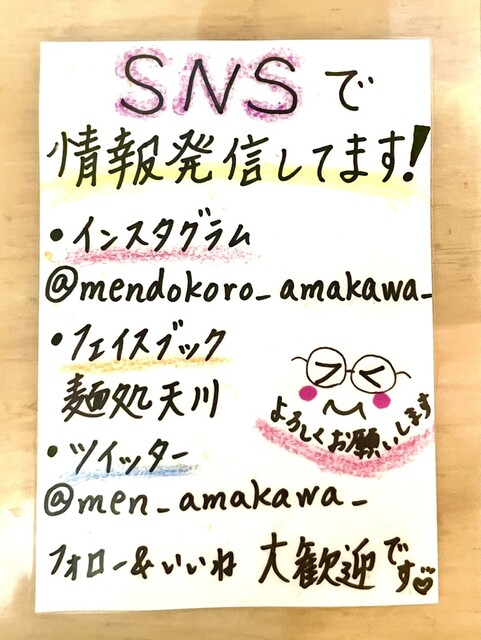 SNSで
情報発信してます!
・インスタグラム
@mendokoro_amakawa_
・フェイスブック
麺処天川
・ツイッター
@men_amakawa_
よろしくお願いします
フォロー&いいね 大歓迎です♡